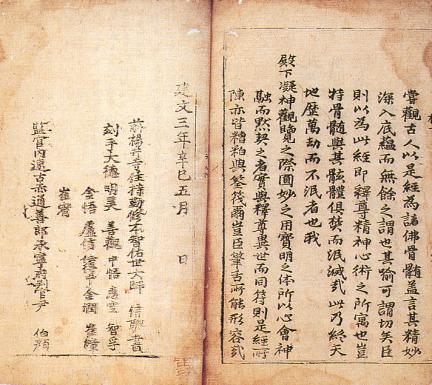 嘗觀古人以是經為諸佛骨髓蓋言其精妙
深入底蘊而無餘之謂也其喻可謂切矣臣
則以為此經即釋尊精神心術之所寓也豈
特骨髓與其骸體俱焚而泯滅哉此乃終天
地歷萬劫而不泯者也我
殿下凝神觀覽之際圓妙之用寶明之体所以心會神
融而默契之者實與釋尊異世而同符則是經所
陳亦皆糟粕與筌筏爾豈臣筆舌所能形容哉
建文三年辛巳五月 日
前楊等寺住持勤修本智佑世大師 信聰 書
刻手大德 明昊 善觀 中悟 應空 智孚
金悟 盧信 金潤 崔
崔
監官內 善郎承寧府判官尹 伯顔